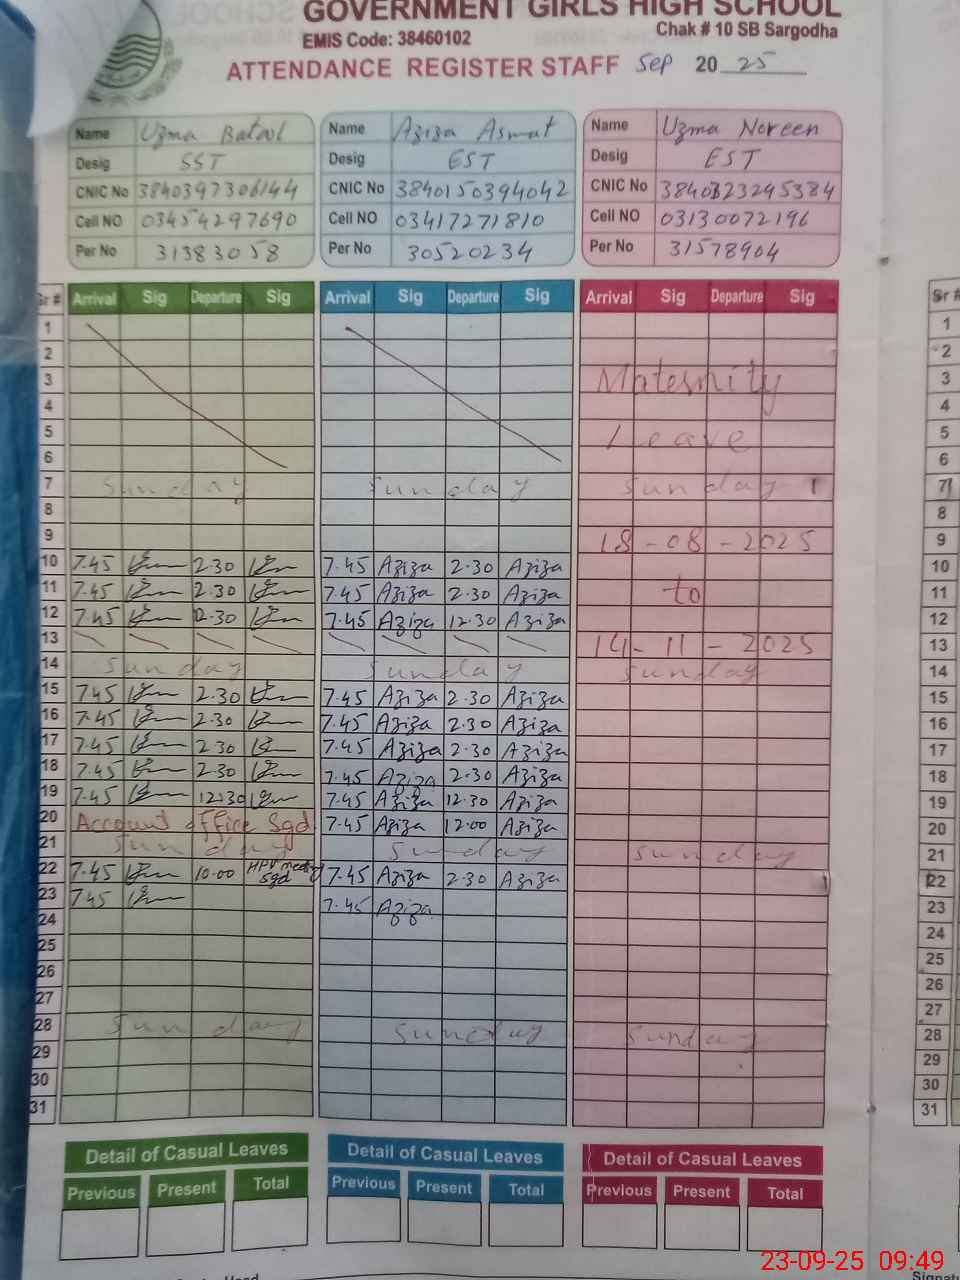 GOVERNMENT GIRLS HIGH SCHOOL
EMIS Code: 38460102 Chak # 10 SB Sargodha
ATTENDANCE REGISTER STAFF Sep 20 25
Name Uzma Batool Name Aziza Asmat Name Uzma Noreen
Desig SST Desig EST Desig EST
CNIC No 3840397306144 CNIC No 3840150394042 CNIC No 3840323295384
Cell NO 03454297690 Cell NO 03417271810 Cell NO 03130072196
Per No 31383058 Per No 30520234 Per No 31578904
Sr # Arrival Sig Departure Sig Arrival Sig Departure Sig Arrival Sig Departure Sig Sr #
1 1
2 2
3 Maternity 3
4 4
5 Leave 5
6 6
7 Sunday Sunday Sunday 7
8 8
9 18-08-2025 9
10 7.45 2.30 7.45 Aziza 2.30 Aziza 10
11 7.45 2.30 7.45 Aziza 2.30 Aziza to 11
12 7.45 12.30 7.45 Aziza 12.30 Aziza 12
13 14-11-2025 13
14 Sunday Sunday Sunday 14
15 7.45 2.30 7.45 Aziza 2.30 Aziza 15
16 7.45 2.30 7.45 Aziza 2.30 Aziza 16
17 7.45 2.30 7.45 Aziza 2.30 Aziza 17
18 7.45 2.30 7.45 Aziza 2.30 Aziza 18
19 7.45 12:30 7.45 Aziza 12.30 Aziza 19
20 Account office Sgd 7.45 Aziza 12.00 Aziza 20
21 Sunday Sunday Sunday 21
22 7.45 10.00 HPV meeting Sgd 7.45 Aziza 2.30 Aziza 22
23 7.45 7.45 Aziza 23
24 24
25 25
26 26
27 27
28 Sunday Sunday Sunday 28
29 29
30 30
31 31
Detail of Casual Leaves Detail of Casual Leaves Detail of Casual Leaves
Previous Present Total Previous Present Total Previous Present Total
23-09-25 09:49